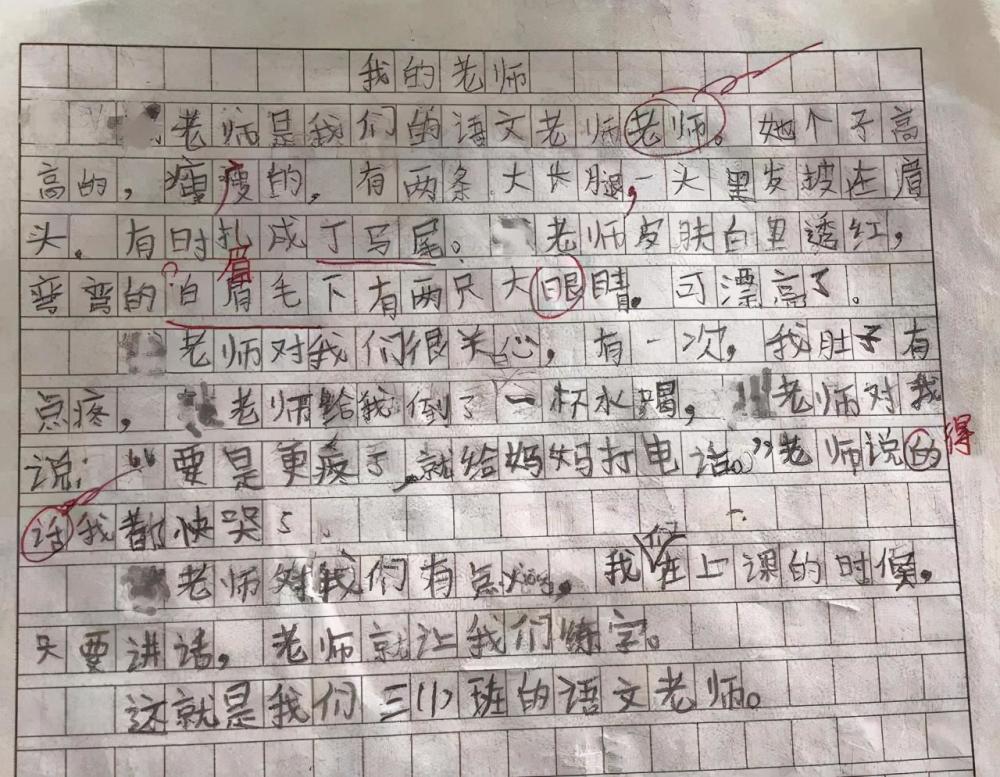 我的老师
老师是我们的语文老师老师。她个子高
高的，瘦瘦的，有两条大长腿，一头黑发披在肩
头。有时扎成了马尾。老师皮肤白里透红，
眉
弯弯的白眉毛下有两只大眼睛。可漂亮了。
老师对我们很关心，有一次，我肚子有
点疼，老师给我倒了一杯水喝，老师对我
说：“要是更疼了就给妈妈打电话。”老师说的得
话我都快哭了。
们
老师对我们有点凶，我在上课的时候，
只要讲话，老师就让我们练字。
这就是我们三(1)班的语文老师。